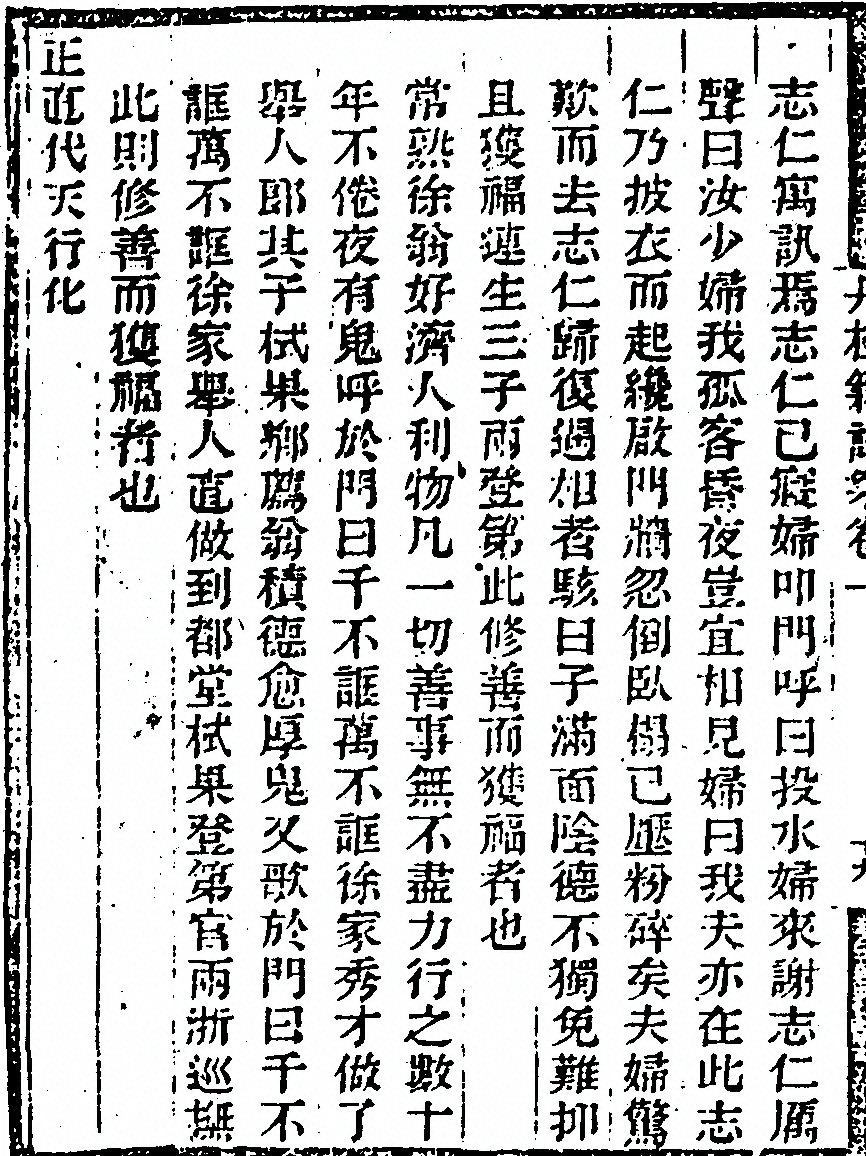 志仁寓訊焉志仁已寢婦叩門呼曰投水婦來謝志仁厲
聲曰汝少婦我孤客昏夜豈宜相見婦曰我夫亦在此志
仁乃披衣而起纔啟門牆忽倒臥榻已壓粉碎矣夫婦驚
歎而去志仁歸復遇相者駭曰子滿面陰德不獨免難抑
且獲福連生三子兩登第此修善而獲福者也
常熟徐翁好濟人利物凡一切善事無不盡力行之數十
年不倦夜有鬼呼於門曰千不誆萬不誆徐家秀才做了
舉人郎其子栻果鄉薦翁積德愈厚鬼又歌於門曰千不
誆萬不誆徐家舉人直做到都堂栻果登第官兩浙巡撫
此則修善而獲福者也
正直代天行化